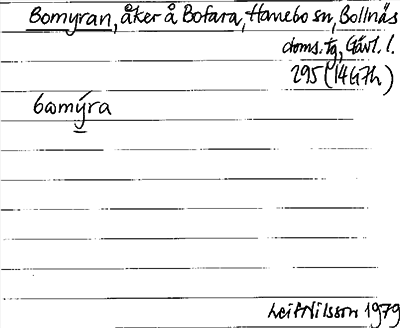 Bomyran, åker å Bofara, Hanebo sn, Bollnäs
doms. tg, Gävl. l.
295 (14G7h)
bωmýra
Leif Nilsson 1979